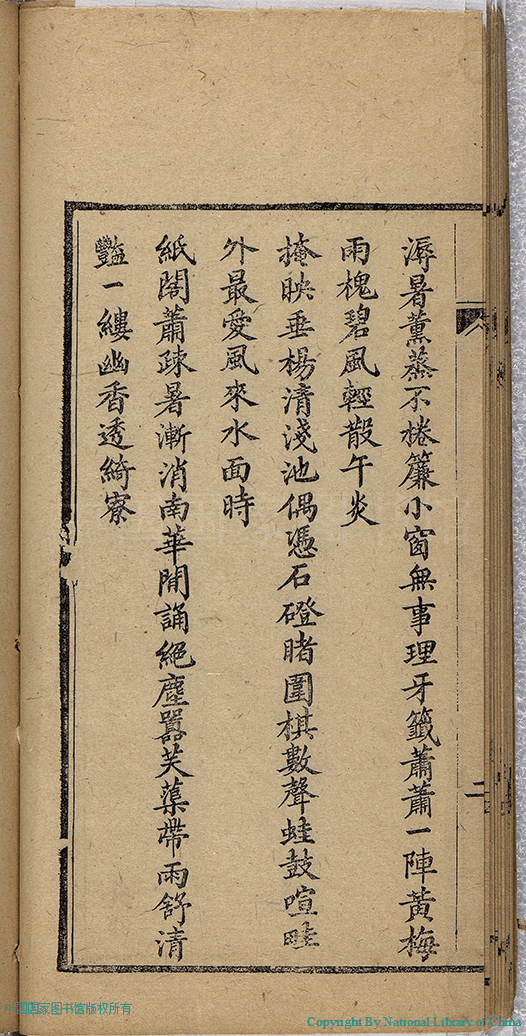 溽暑薰蒸不捲簾小窗無事理牙籤蕭蕭一陣黃梅
雨槐碧風輕散午炎
掩映垂楊清淺池偶憑石磴賭圍棋數聲蛙鼓喧畦
外最愛風來水面時
紙閣蕭疎暑漸消南華閒誦絕塵囂芙蕖帶雨舒清
豔一縷幽香透綺寮
二
中国国家图书馆版权所有
Copyright By National Library of China